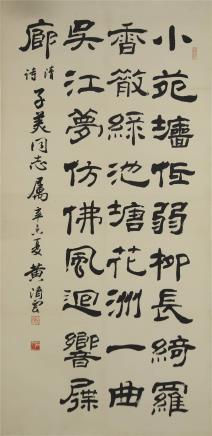 小苑墻低弱柳長綺羅
香散綠池塘花洲一曲
吳江夢仿佛風迴響屧
廊
清詩
子美同志屬 辛夏 黃